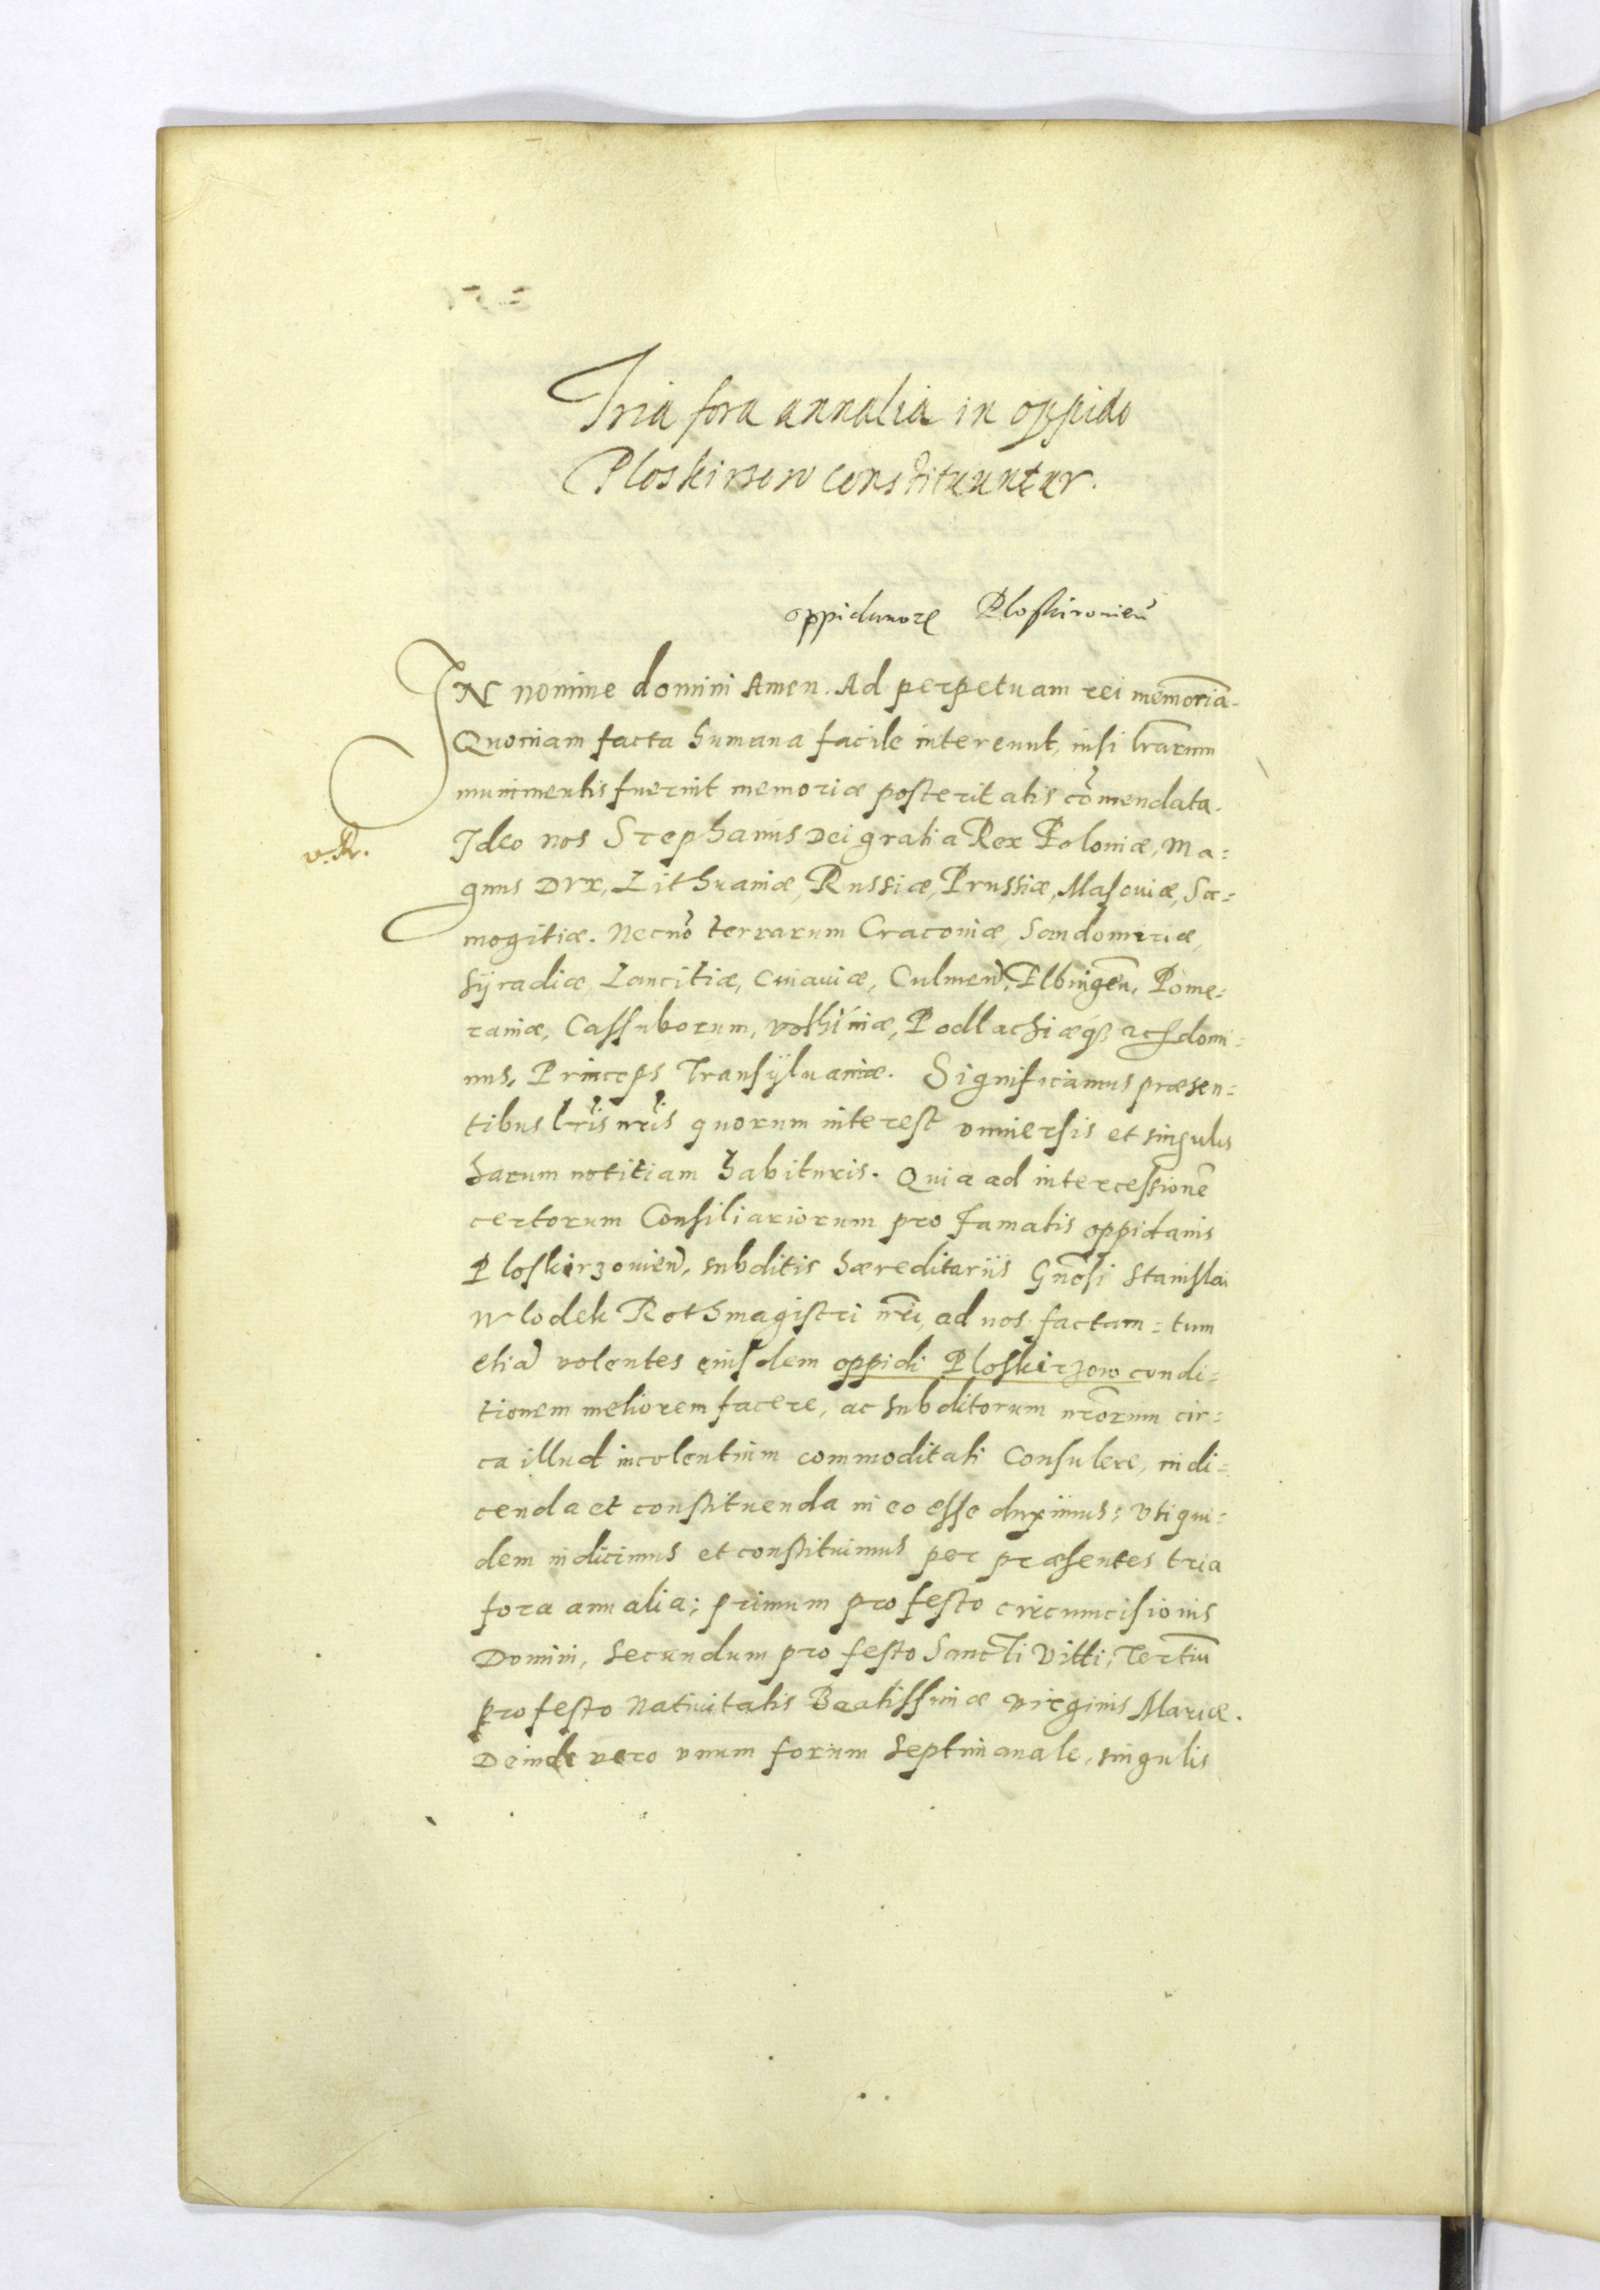 Tria fora annalia in oppido
Ploskirzow constituuntur.
oppidanorȩ Ploskironien̄
IN nomine domini Amen. Ad perpetuam rei memoriā.
Quoniam facta humana facile intereunt, nisi lr̄arum
munimentis fuerint memoriæ posteritatis cōmendata.
Ideo nos Stephanus Dei gratia Rex Poloniæ, Ma=
v. R.
gnus Dux, Lithuaniæ, Russiæ, Prussiæ, Masouiæ, Sa=
mogitiæ. Necnō terrarum Cracouiæ, Sandomiriæ,
Syradiæ, Lancitiæ, Cuiauiæ, Culmen̄, Elbingen̄, Pome=
raniæ, Cassuborum, Volhiniæ, Podlachiæq₃ &c domi=
nus, Princeps Transyluaniæ. Significamus præsen=
tibus lr̄is nr̄is quorum interest vniuersis et singulis
harum notitiam habituris. Quia ad intercessionē
certorum Consiliariorum pro famatis oppidanis
Ploskirzouien̄, subditis hæreditariis Gn̄osi Stanislai
Wlodek Rothmagistri nr̄i, ad nos factam = tum
etiā volentes eiusdem oppidi Ploskirzow condi=
tionem meliorem facere, ac subditorum nr̄orum cir=
ca illud incolentium commoditati Consulere, indi=
cenda et constituenda in eo esse duximus; Uti qui=
dem indicimus et constituimus per præsentes tria
fora annalia; primum pro festo circumcisionis
Domini, secundum pro festo Sancti Vitti, Tertiū
pro festo Natiuitatis Beatissimæ virginis Mariæ.
Deinde vero vnum forum septimanale, singulis